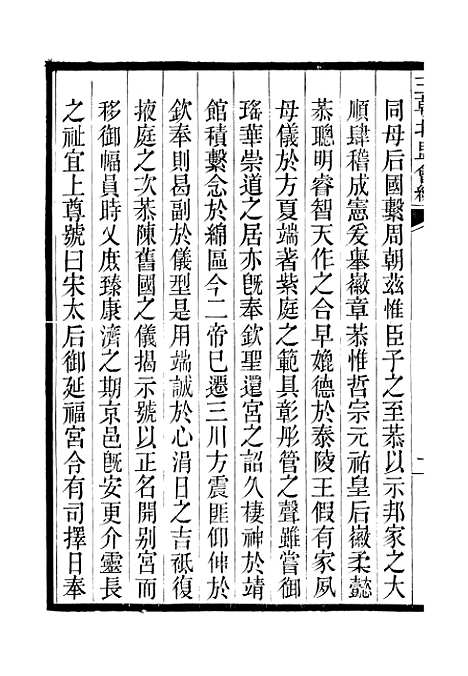 同母后國繫周朝茲惟臣子之至恭以示邦家之大
順肆稽成憲爰舉徽章恭惟哲宗元祐皇后徽柔懿
恭聰明睿智天作之合早媲德於泰陵王假有家夙
母儀於方夏端著紫庭之範具彰彤管之聲雖嘗御
瑤華崇道之居亦旣奉欽聖還宮之詔久棲神於靖
館積繫念於綿區今二帝巳遷三川方震匪仰伸於
欽奉則曷副於儀型是用端誠於心涓日之吉祇復
掖庭之次恭陳舊國之儀揭示號以正名開别宮而
移御幅員時乂庶臻康濟之期京邑旣安更介靈長
之祉宜上尊號曰宋太后御延福宮令有司擇日奉